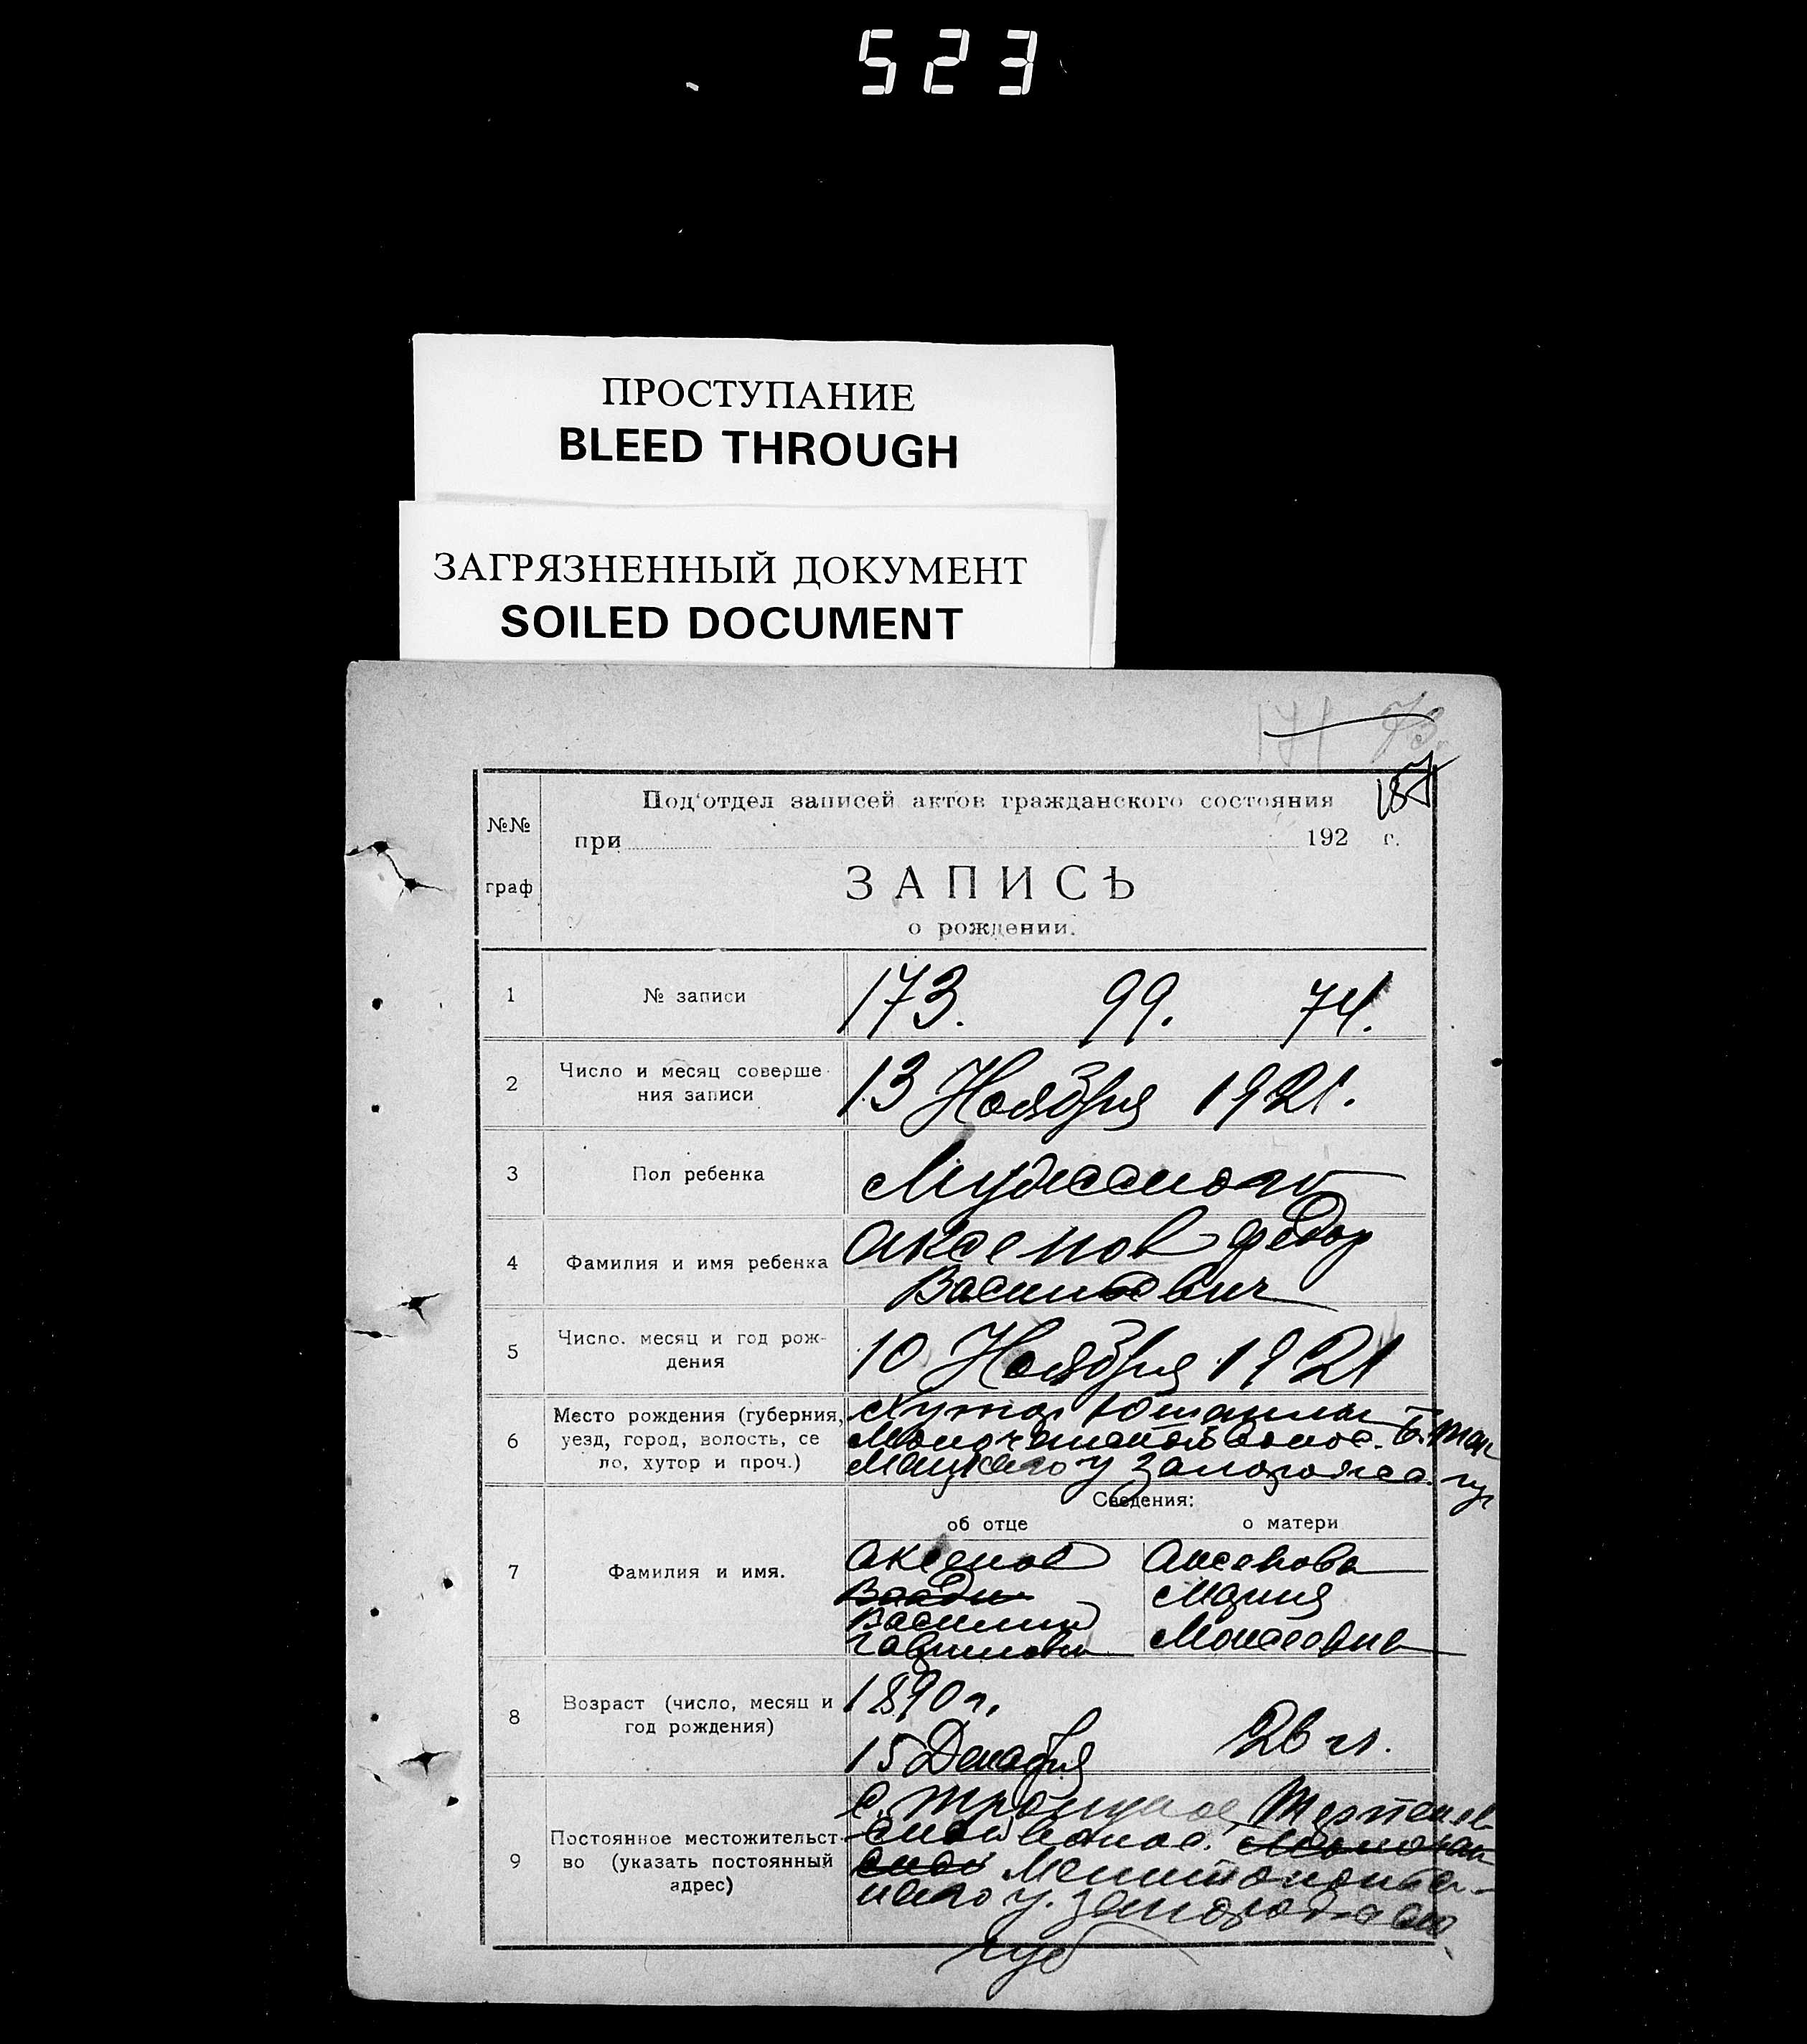 523
ПРОСТУПАНИЕ
BLEED THROUGH
ЗАГРЯЗНЕННЫЙ ДОКУМЕНТ
SOILED DOCUMENT
171 73
187
№№ граф
Под'отдел записей актов гражданского состояния
при 192 г.
ЗАПИСЬ
о рождении.
1 № записи 173. 99. 74.
2 Число и месяц соверше-
ния записи
13 Ноября 1921.
3 Пол ребенка Мужского
4 Фамилия и имя ребенка Аксенов Федор
Васильевич
5 Число. месяц и год рож-
дения
10 Ноября 1921
6 Место рождения (губерния,
уезд, город, волость, се
ло, хутор и проч.)
Хутор
волос. Б. Ток
Мацкого у Запорожс. гу
Сведения:
об отце о матери
7 Фамилия и имя.
Аксенов
Василий
Гаврилович
Аксенова
Мария
Моисеевна
8 Возраст (число, месяц и
год рождения)
1890 г.
15 Декабря
26 л.
9 Постоянное местожительст-
во (указать постоянный
адрес)
с. Троицкое Терпенев
ской волос.
Мелитополь
ского у. Запорожской
губ